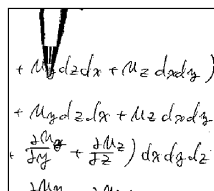 + u_y dz dx + u_z dx dy )
+ u_y dz dx + u_z dx dy
+ ∂u_y/∂y + ∂u_z/∂z ) dx dy dz